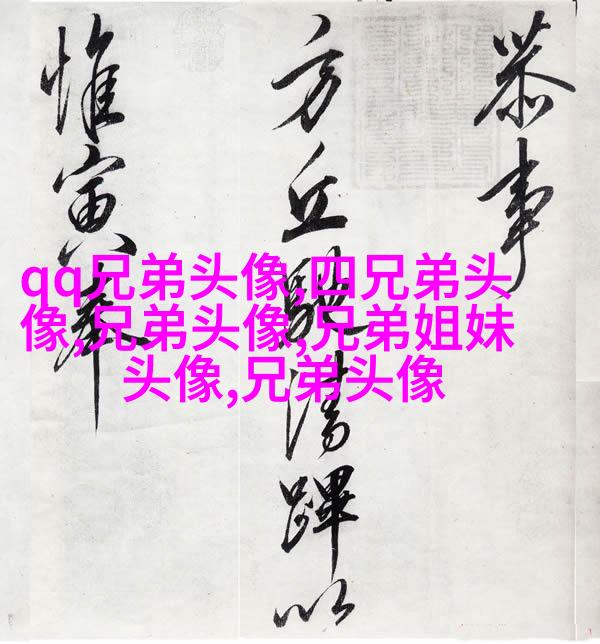 恭事
方丘馳清蹕以
惟寅奉
qq兄弟头像,四兄弟头
像,兄弟头像,兄弟姐妹
头像,兄弟头像